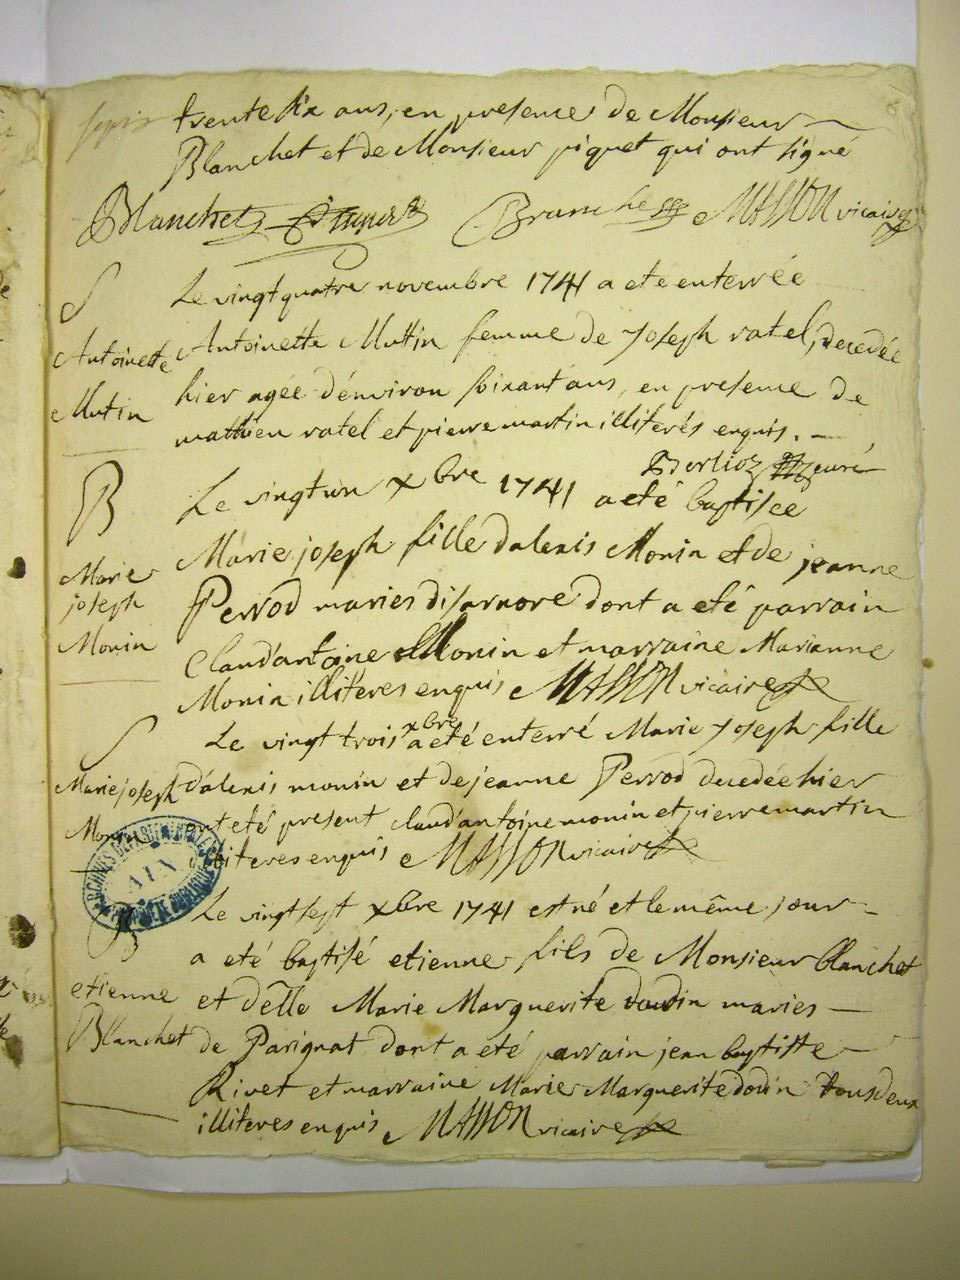 trente six ans, en presence de Monsieur
Blanchet et de Monsieur piquet qui ont signé
Blanchet MASSON vicaire
S Le vingt quatre novembre 1741 a ete enterrée
Antoinette Antoinette Muttin femme de Joseph ratel, decedée
Mutin hier agée d'environ soixant ans, en presence de
mathieu ratel et pierre martin illiterés enquis.
Berlioz curé
B Le vingt un xbre 1741 a eté baptisee
Marie Marie joseph fille dalexis Monin et de jeanne
joseph Perrod maries disarnore dont a eté parrain
Monin Claud'antoine Monin et marraine Marianne
Monin illiteres enquis MASSON vicaire
S Le vingt trois xbre a eté enterré Marie Joseph fille
Marie joseph d'alexis monin et de jeanne Perrod decedée hier
Monin ont eté present claud'antoine monin et pierre martin
illiteres enquis MASSON vicaire
ARCHIVES DEPARTEMENTALES
AIN
B Le vingt sept xbre 1741 est né et le même jour
a eté baptisé etienne fils de Monsieur blanchet
etienne et delle Marie Marguerite doudin maries
Blanchet de Parignat dont a été parrain jean baptiste
Rivet et marraine Marie Marguerite doudin tous deux
illiteres enquis MASSON vicaire